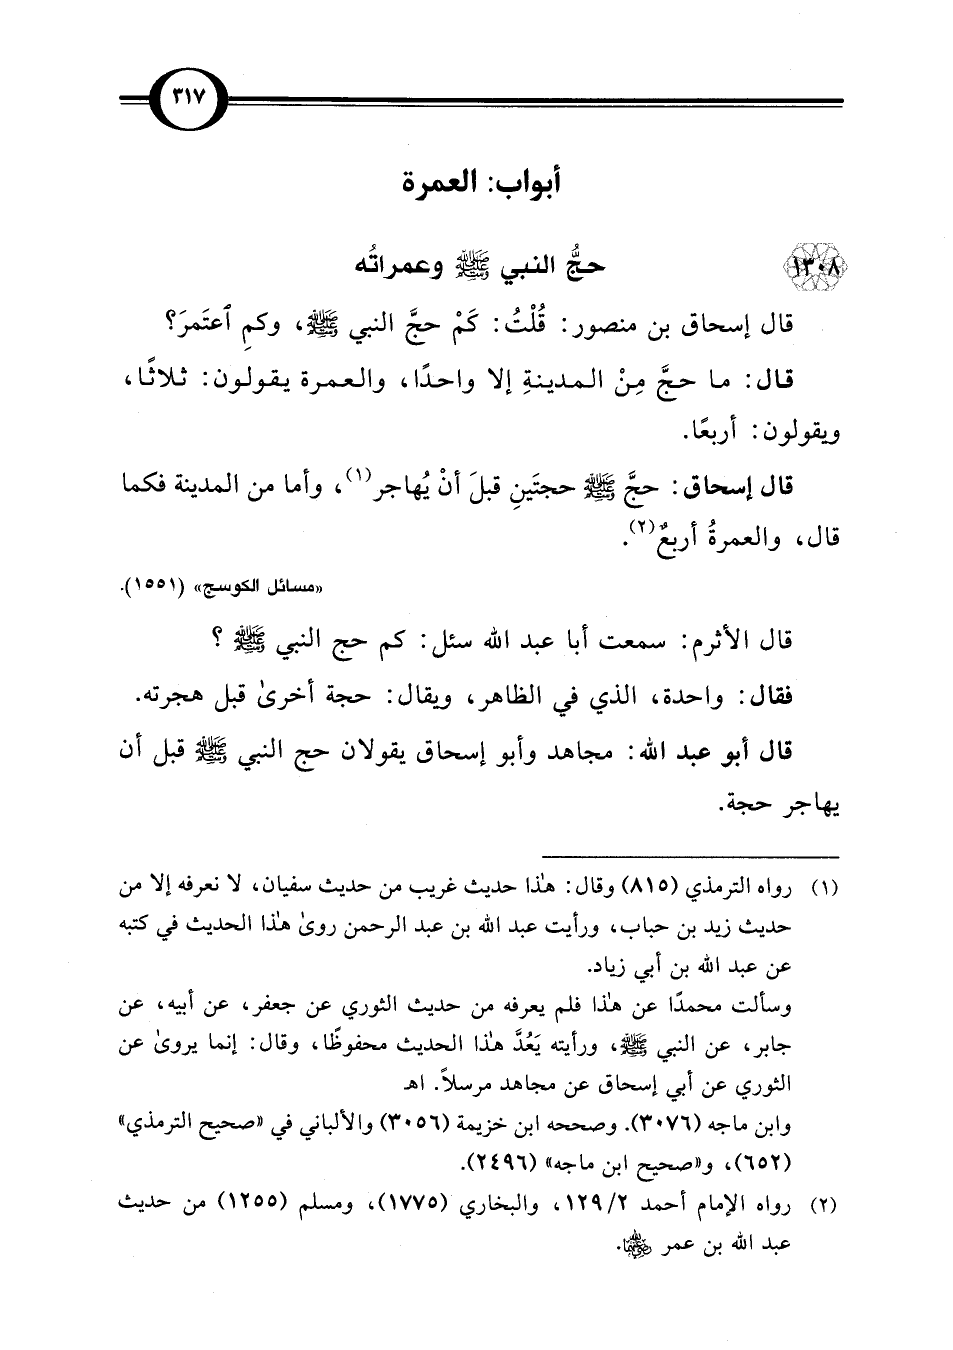 ٣١٧
أبواب: العمرة
١٣٠٨
حجُّ النبي ﷺ وعمراتُه
قال إسحاق بن منصور: قُلْتُ: كَمْ حجَّ النبي ﷺ، وكمِ ٱعتَمرَ؟
قال: ما حجَّ مِنْ المدينةِ إلا واحدًا، والعمرة يقولون: ثلاثًا،
ويقولون: أربعًا.
قال إسحاق: حجَّ ﷺ حجتَينِ قبلَ أنْ يُهاجر(١)، وأما من المدينة فكما
قال، والعمرةُ أربعٌ(٢).
«مسائل الكوسج» (١٥٥١).
قال الأثرم: سمعت أبا عبد الله سئل: كم حج النبي ﷺ ؟
فقال: واحدة، الذي في الظاهر، ويقال: حجة أخرىٰ قبل هجرته.
قال أبو عبد الله: مجاهد وأبو إسحاق يقولان حج النبي ﷺ قبل أن
يهاجر حجة.
(١) رواه الترمذي (٨١٥) وقال: هٰذا حديث غريب من حديث سفيان، لا نعرفه إلا من
حديث زيد بن حباب، ورأيت عبد الله بن عبد الرحمن روىٰ هٰذا الحديث في كتبه
عن عبد الله بن أبي زياد.
وسألت محمدًا عن هٰذا فلم يعرفه من حديث الثوري عن جعفر، عن أبيه، عن
جابر، عن النبي ﷺ، ورأيته يَعُدَّ هٰذا الحديث محفوظًا، وقال: إنما يروىٰ عن
الثوري عن أبي إسحاق عن مجاهد مرسلاً. اهـ
وابن ماجه (٣٠٧٦). وصححه ابن خزيمة (٣٠٥٦) والألباني في «صحيح الترمذي»
(٦٥٢)، و«صحيح ابن ماجه» (٢٤٩٦).
(٢) رواه الإمام أحمد ٢/ ١٢٩، والبخاري (١٧٧٥)، ومسلم (١٢٥٥) من حديث
عبد الله بن عمر رضي الله عنهما.